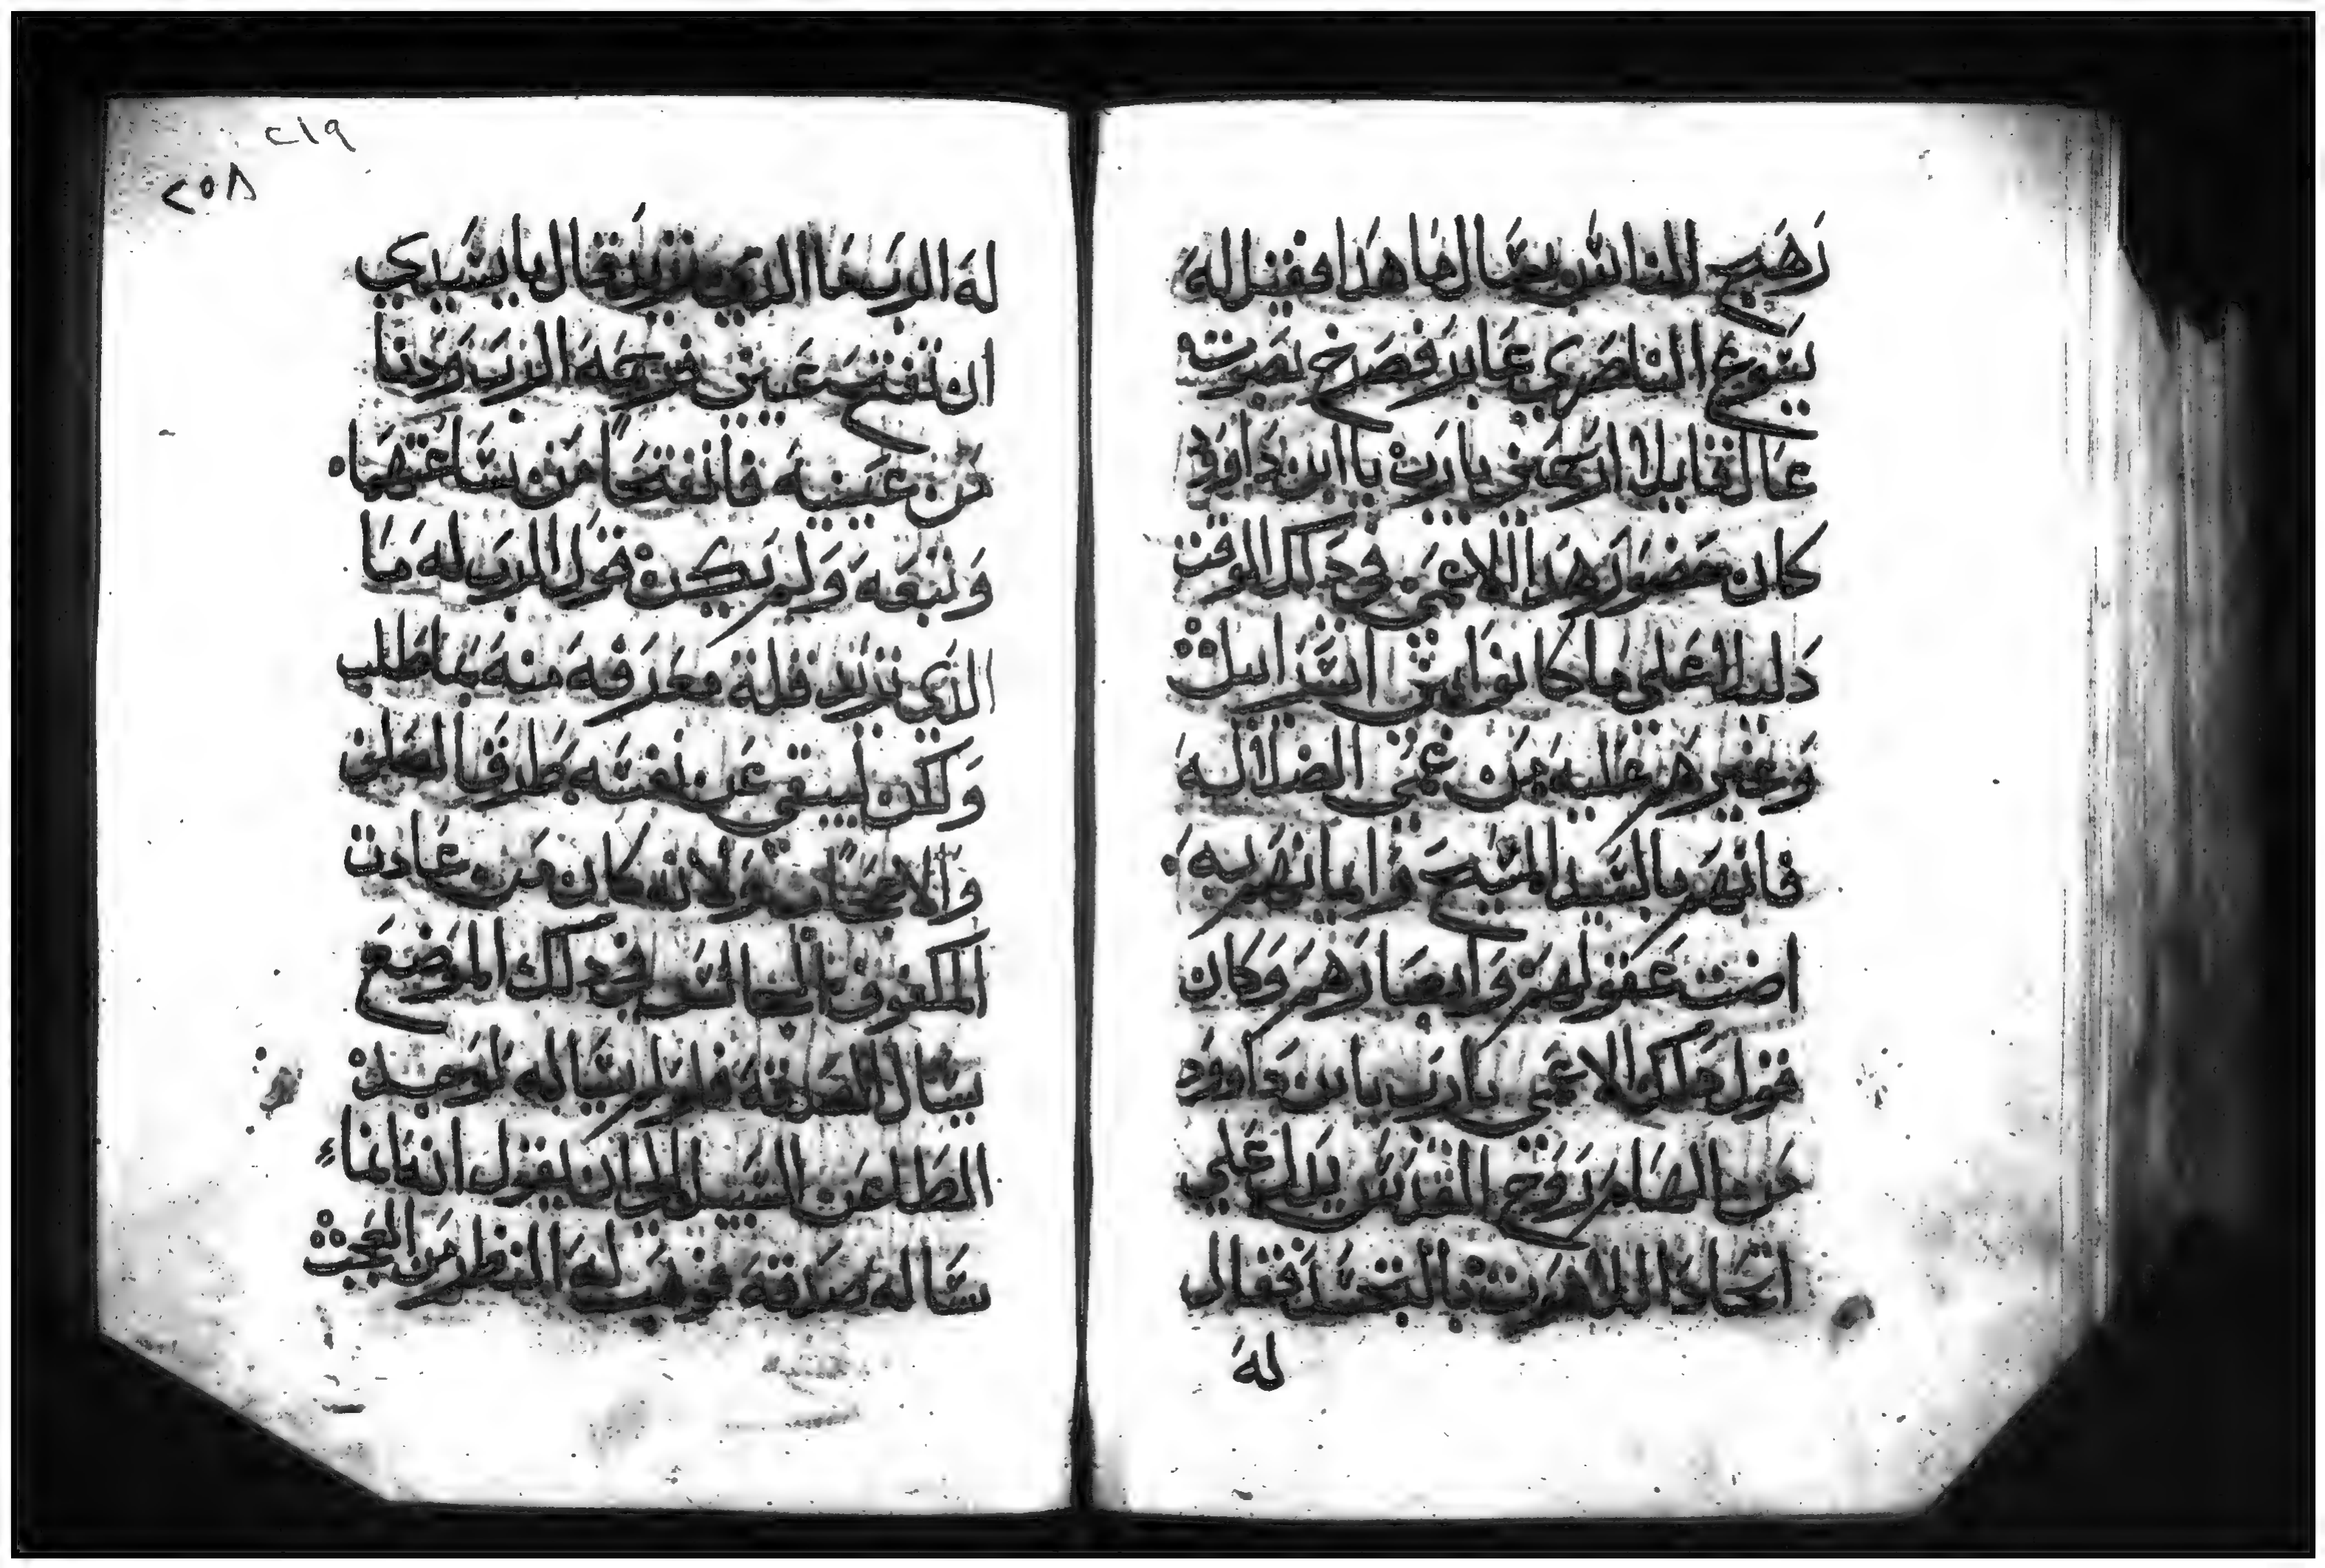 رهج الناس فقال ما هذا فقيل له
يسوع الناصري عابر فصرخ بصوت
عال قايلا ارحمني يارب يا ابن داوود
كان حضور هدا الاعمى في دلك الوقت
دليلا على ما كانوا بني اسراييل
وغيرهم عليه من عمى الضلاله
فانهم بالسيد المسيح وايمانهم به
اضت عقولهم وابصارهم وكان
قول هدا الاعمى يارب يا ابن داوود
عن الهام روح القدس يدل على
اتحاد اللاهوت بالتجسد فقال
له
٢١٩
٢٥٨
له الرب ما الدي تريد قال يا سيدي
ان تفتح عيني فرحمه الرب ودنا
من عينيه فانفتحا من ساعتهما
وتبعه ولم يكن قول الرب له ما
الدي تريد قلة معرفه منه بما طلب
ولكن لينفي عن نفسه طرقا
ولانه كان من عادت
المكفوف الجالس في دلك الموضع
يسال الصدقه فلو لم يساله لوجد
الطاعن السبيل الى ان يقول انه انما
ساله صدقه فوهب له النظر من العجب